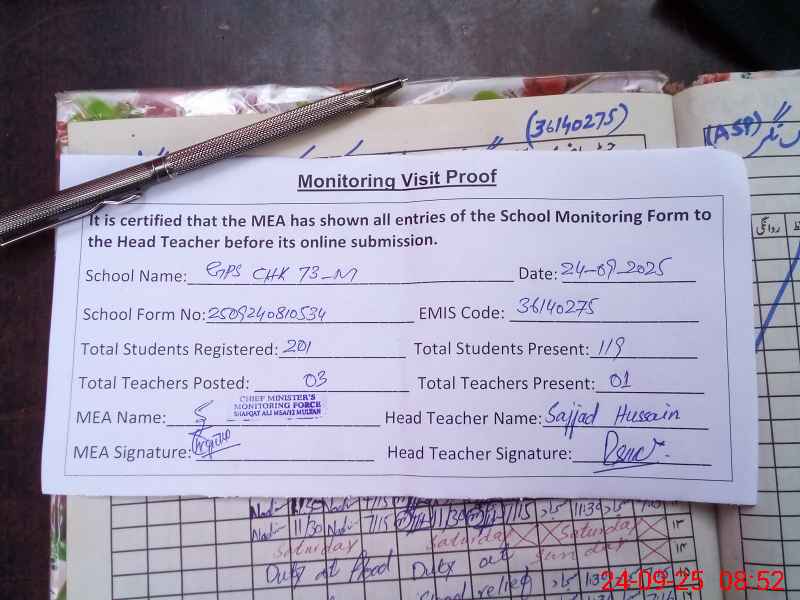 (36140275)
(ASP)
Monitoring Visit Proof
It is certified that the MEA has shown all entries of the School Monitoring Form to
the Head Teacher before its online submission.
School Name: GPS CHK 73_M Date: 24-09-2025
School Form No: 2509240810534 EMIS Code: 36140275
Total Students Registered: 201 Total Students Present: 119
Total Teachers Posted: 03 Total Teachers Present: 01
CHIEF MINISTER'S
MONITORING FORCE
SHAFQAT ALI MEA/12 MULTAN
MEA Name: Head Teacher Name: Sajjad Hussain
MEA Signature: Head Teacher Signature:
روانگی
11/30 7/15 11/30 7/15 11:30
Saturday Saturday ۱۳
Sunday ۱۴
Duty at flood Duty at
flood relief
24-09-25 08:52